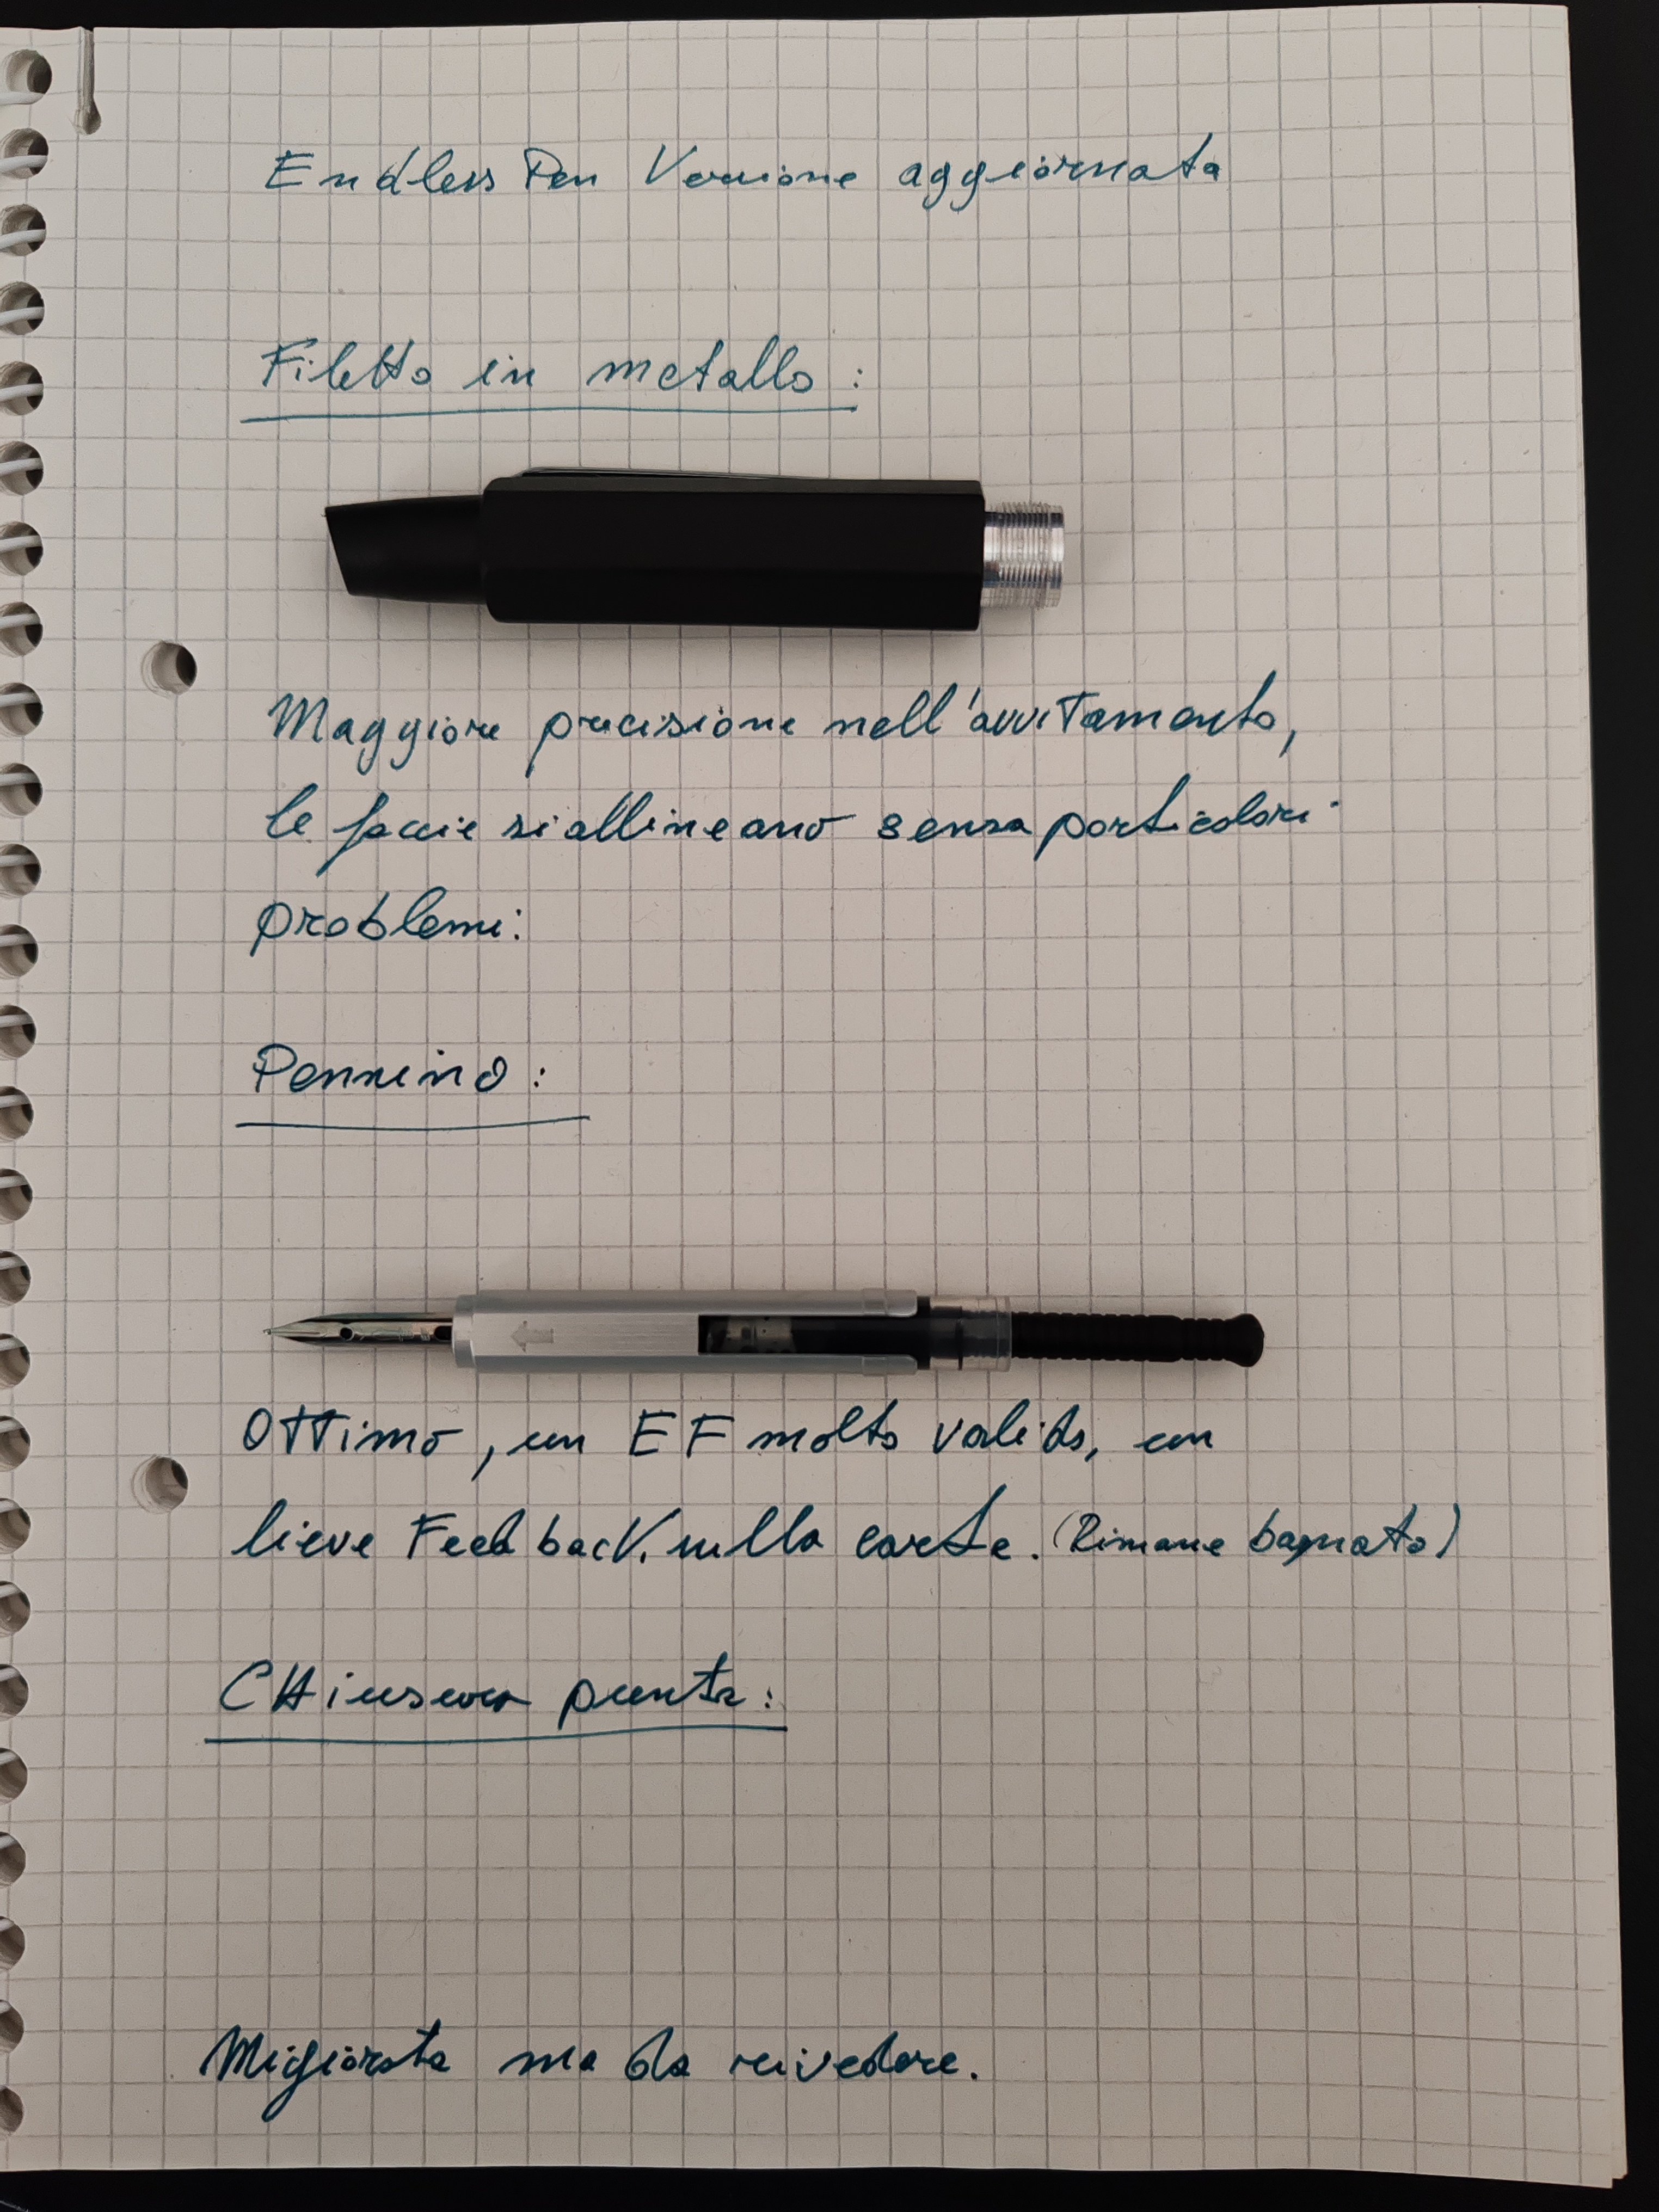 Endless Pen Versione aggiornata
Filetto in metallo:
Maggiore precisione nell'avvitamento,
le faccie si allineano senza particolari
problemi:
Pennino:
Ottimo, un EF molto valido, un
lieve Feedback sulla carta. (Rimane bagnato)
CHiusura punta:
Migiorata ma da rivedere.